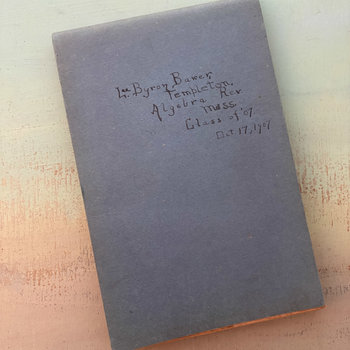 Byron Bawer
Templeton
Algebra Rev
Mass.
Class of '07
Oct 17, 1907